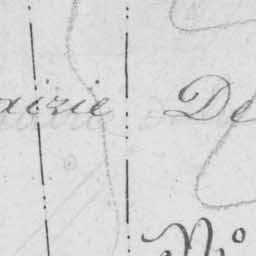 airie De
N°